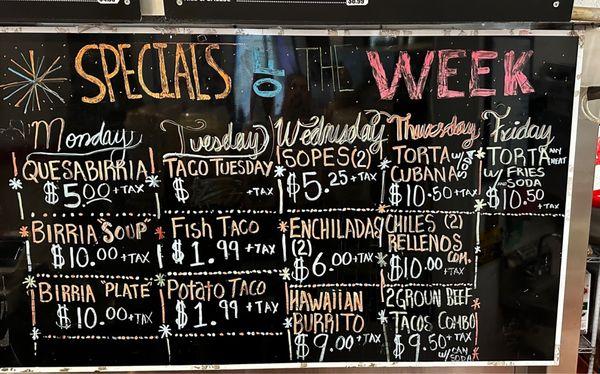 SPECIALS OF THE WEEK
Monday
QUESABIRRIA
$5.00 +TAX
BIRRIA "SOUP"
$10.00 +TAX
BIRRIA "PLATE"
$10.00 +TAX
Tuesday
TACO TUESDAY
$ +TAX
FISH TACO
$1.99 +TAX
POTATO TACO
$1.99 +TAX
Wednesday
SOPES (2)
$5.25 +TAX
ENCHILADAS
(2)
$6.00 +TAX
HAWAIIAN
BURRITO
$9.00 +TAX
Thursday
TORTA W/ SODA
CUBANA
$10.50 +TAX
CHILES (2)
RELLENOS COM.
$10.00 +TAX
2 GROUN BEEF
TACOS COMBO
$9.50 +TAX
W/ CAN SODA
Friday
TORTA ANY MEAT
W/ FRIES
SODA
$10.50 +TAX